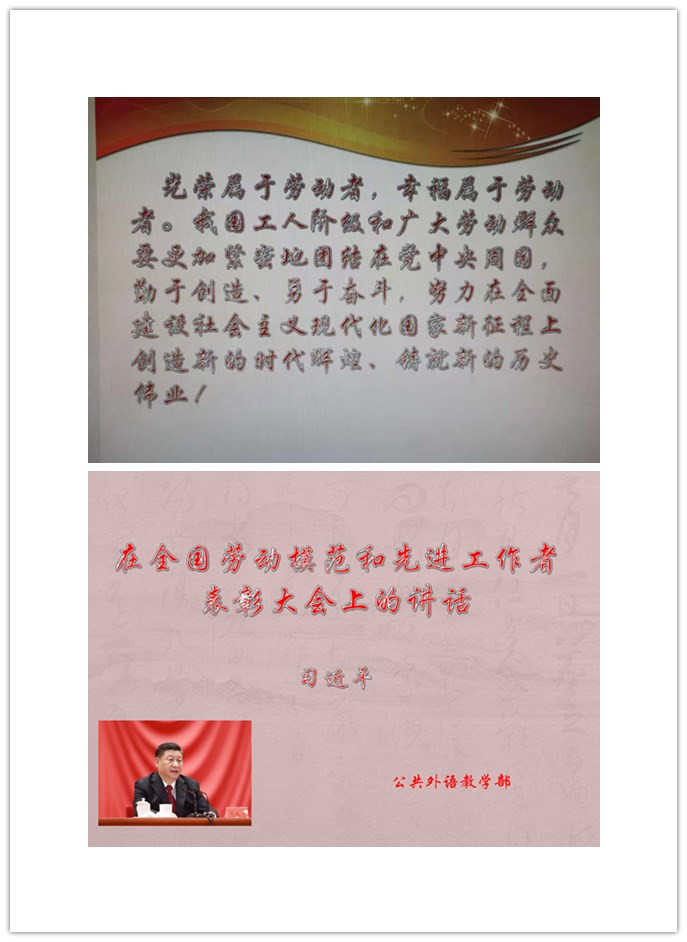 光荣属于劳动者，幸福属于劳动
者。我国工人阶级和广大劳动群众
要更加紧密地团结在党中央周围，
勤于创造、勇于奋斗，努力在全面
建设社会主义现代化国家新征程上
创造新的时代辉煌、铸就新的历史
伟业！
在全国劳动模范和先进工作者
表彰大会上的讲话
习近平
公共外语教学部